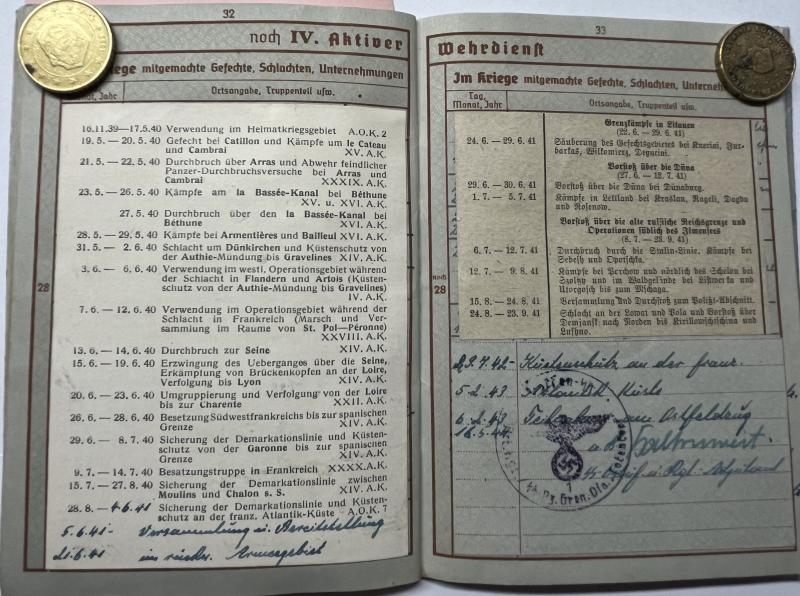 32
noch IV. Aktiver
Kriege mitgemachte Gefechte, Schlachten, Unternehmungen
Monat, Jahr Ortsangabe, Truppenteil usw.
16.11.39—17.5.40 Verwendung im Heimatkriegsgebiet A.O.K. 2
19.5. — 20.5.40 Gefecht bei Catillon und Kämpfe um le Cateau
und Cambrai XV. A.K.
21.5. — 22.5.40 Durchbruch über Arras und Abwehr feindlicher
Panzer-Durchbruchsversuche bei Arras und
Cambrai XXXIX. A.K.
23.5. — 26.5.40 Kämpfe am la Bassée-Kanal bei Béthune
XV. u. XVI. A.K.
27.5.40 Durchbruch über den la Bassée-Kanal bei
Béthune XVI. A.K.
28.5. — 29.5.40 Kämpfe bei Armentières und Bailleul XVI. A.K.
31.5. — 2.6.40 Schlacht um Dünkirchen und Küstenschutz von
der Authie-Mündung bis Gravelines XIV. A.K.
3.6. — 6.6.40 Verwendung im westl. Operationsgebiet während
der Schlacht in Flandern und Artois (Küsten-
schutz von der Authie-Mündung bis Gravelines)
IV. A.K.
28
7.6. — 12.6.40 Verwendung im Operationsgebiet während der
Schlacht in Frankreich (Marsch und Ver-
sammlung im Raume von St. Pol—Péronne)
XXVIII. A.K.
13.6. — 14.6.40 Durchbruch zur Seine XIV. A.K.
15.6. — 19.6.40 Erzwingung des Ueberganges über die Seine,
Erkämpfung von Brückenköpfen an der Loire,
Verfolgung bis Lyon XIV. A.K.
20.6. — 23.6.40 Umgruppierung und Verfolgung von der Loire
bis zur Charente XXII. A.K.
26.6. — 28.6.40 Besetzung Südwestfrankreichs bis zur spanischen
Grenze XIV. A.K.
29.6. — 8.7.40 Sicherung der Demarkationslinie und Küsten-
schutz von der Garonne bis zur spanischen
Grenze XIV. A.K.
9.7. — 14.7.40 Besatzungstruppe in Frankreich XXXX. A.K.
15.7. — 27.8.40 Sicherung der Demarkationslinie zwischen
Moulins und Chalon s. S. XIV. A.K.
28.8. — 4.6.41 Sicherung der Demarkationslinie und Küsten-
schutz an der franz. Atlantik-Küste A.O.K. 7
5.6.41- Versammlung u. Bereitstellung
21.6.41 im rückw. Armeegebiet
33
Wehrdienst
Im Kriege mitgemachte Gefechte, Schlachten,
Tag, Monat, Jahr Ortsangabe, Truppenteil usw.
Grenzkämpfe in Litauen
(22.6. — 29.6.41)
24.6. — 29.6.41 Säuberung des Gefechtsgebietes bei
Vorstoß über die Düna
(27.6. — 12.7.41)
29.6. — 30.6.41 Vorstoß über die Düna bei Dünaburg.
1.7. — 5.7.41 Kämpfe in Lettland bei Kraslau, Rageli, Dagda
und Rosenow.
Vorstoß über die alte russische Reichsgrenze und
Operationen südlich des Ilmensees
(8.7. — 23.9.41)
6.7. — 12.7.41 Durchbruch durch die Stalin-Linie. Kämpfe bei
Sebesh und Opotschka.
noch
28
12.7. — 9.8.41 Kämpfe bei Porchow und nördlich des Schelon bei
und im Waldgelände bei
bis zum Mschaga.
15.8. — 24.8.41 Versammlung und Durchstoß zum
24.8. — 23.9.41 Schlacht an der Lowat und Pola und Vorstoß über
Demjansk nach Norden bis Kirillowschtschina und
23.7.42- Küstenschutz an der franz.
5.2.43 Atlantik Küste
6.2.43 Teilnahme am Ostfeldzug